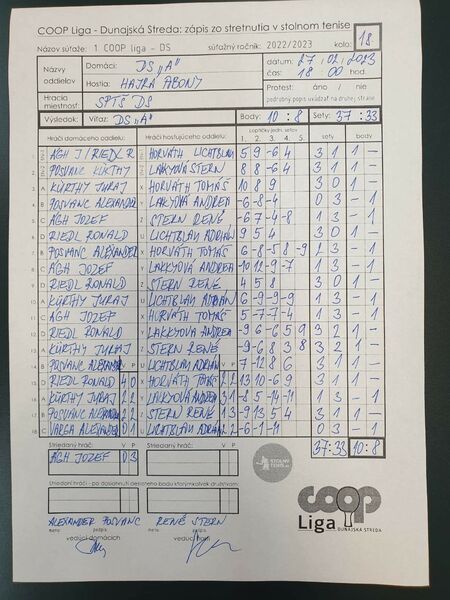 COOP Liga - Dunajská Streda: zápis zo stretnutia v stolnom tenise
Názov súťaže: 1 COOP liga - DS súťažný ročník: 2022/2023 kolo: 18.
Názvy oddielov Domáci: DS „A" dátum:
Hostia: HAJRÁ ABONY čas: 18 00 hod.
Hracia miestnosť SPTŠ DS Protest: áno / nie
podrobný popis uviazať na druhej strane
Výsledok: Víťaz: DS „A" Body: 10 : 8 Sety: 37 : 33
Hráči domáceho oddielu: Hráči hosťujúceho oddielu: Loptičky jedn. setov sety body
1. 2. 3. 4. 5.
ÁGH J / RIEDL R HORVÁTH LICHTBLAU 5 9 -6 4 3 1 1 -
POSVANC KÜRTHY LAKYOVÁ STERN 8 8 -6 4 3 1 1 -
KÜRTHY JURAJ HORVÁTH TOMÁŠ 10 8 9 3 0 1 -
POSVANC ALEXANDER LAKYOVÁ ANDREA -6 -8 -4 0 3 - 1
ÁGH JOZEF STERN RENÉ -6 7 -4 -8 1 3 - 1
RIEDL RONALD LICHTBLAU ADRIAN 9 5 4 3 0 1 -
POSVANC ALEXANDER HORVÁTH TOMÁŠ -6 -8 5 8 -9 2 3 - 1
ÁGH JOZEF LAKKYOVÁ ANDREA -10 12 -9 -7 1 3 - 1
RIEDL RONALD STERN RENÉ 4 5 8 3 0 1 -
KÜRTHY JURAJ LICHTBLAU ADRIAN 6 -9 -9 -9 1 3 - 1
ÁGH JOZEF HORVÁTH TOMÁŠ 5 -7 -7 -4 1 3 - 1
RIEDL RONALD LAKKYOVÁ ANDREA -9 6 -6 5 9 3 2 1 -
KÜRTHY JURAJ STERN RENÉ -9 -6 8 3 8 3 2 1 -
POSVANC ALEXANDER V P LICHTBLAU ADRIAN V P 7 -12 8 6 3 1 1 -
RIEDL RONALD 4 0 HORVÁTH TOMÁŠ 2 2 13 10 -6 9 3 1 1 -
KÜRTHY JURAJ 2 2 LAKKYOVÁ ANDREA 3 1 -8 5 -14 -11 1 3 - 1
POSVANC ALEXANDER 2 2 STERN RENÉ 1 3 -9 13 5 4 3 1 1 -
VARGA ALEXANDER 0 1 LICHTBLAU ADRIAN 2 2 -6 -1 -11 0 3 - 1
Striedaný hráč: V P Striedaný hráč: V P 37:33 10:8
ÁGH JOZEF 0 3
STOLNÝ
ALEXANDER POSVANC RENÉ STERN
meno podpis meno podpis
vedúci domácich vedúci hostí
COOP
Liga DUNAJSKÁ STREDA